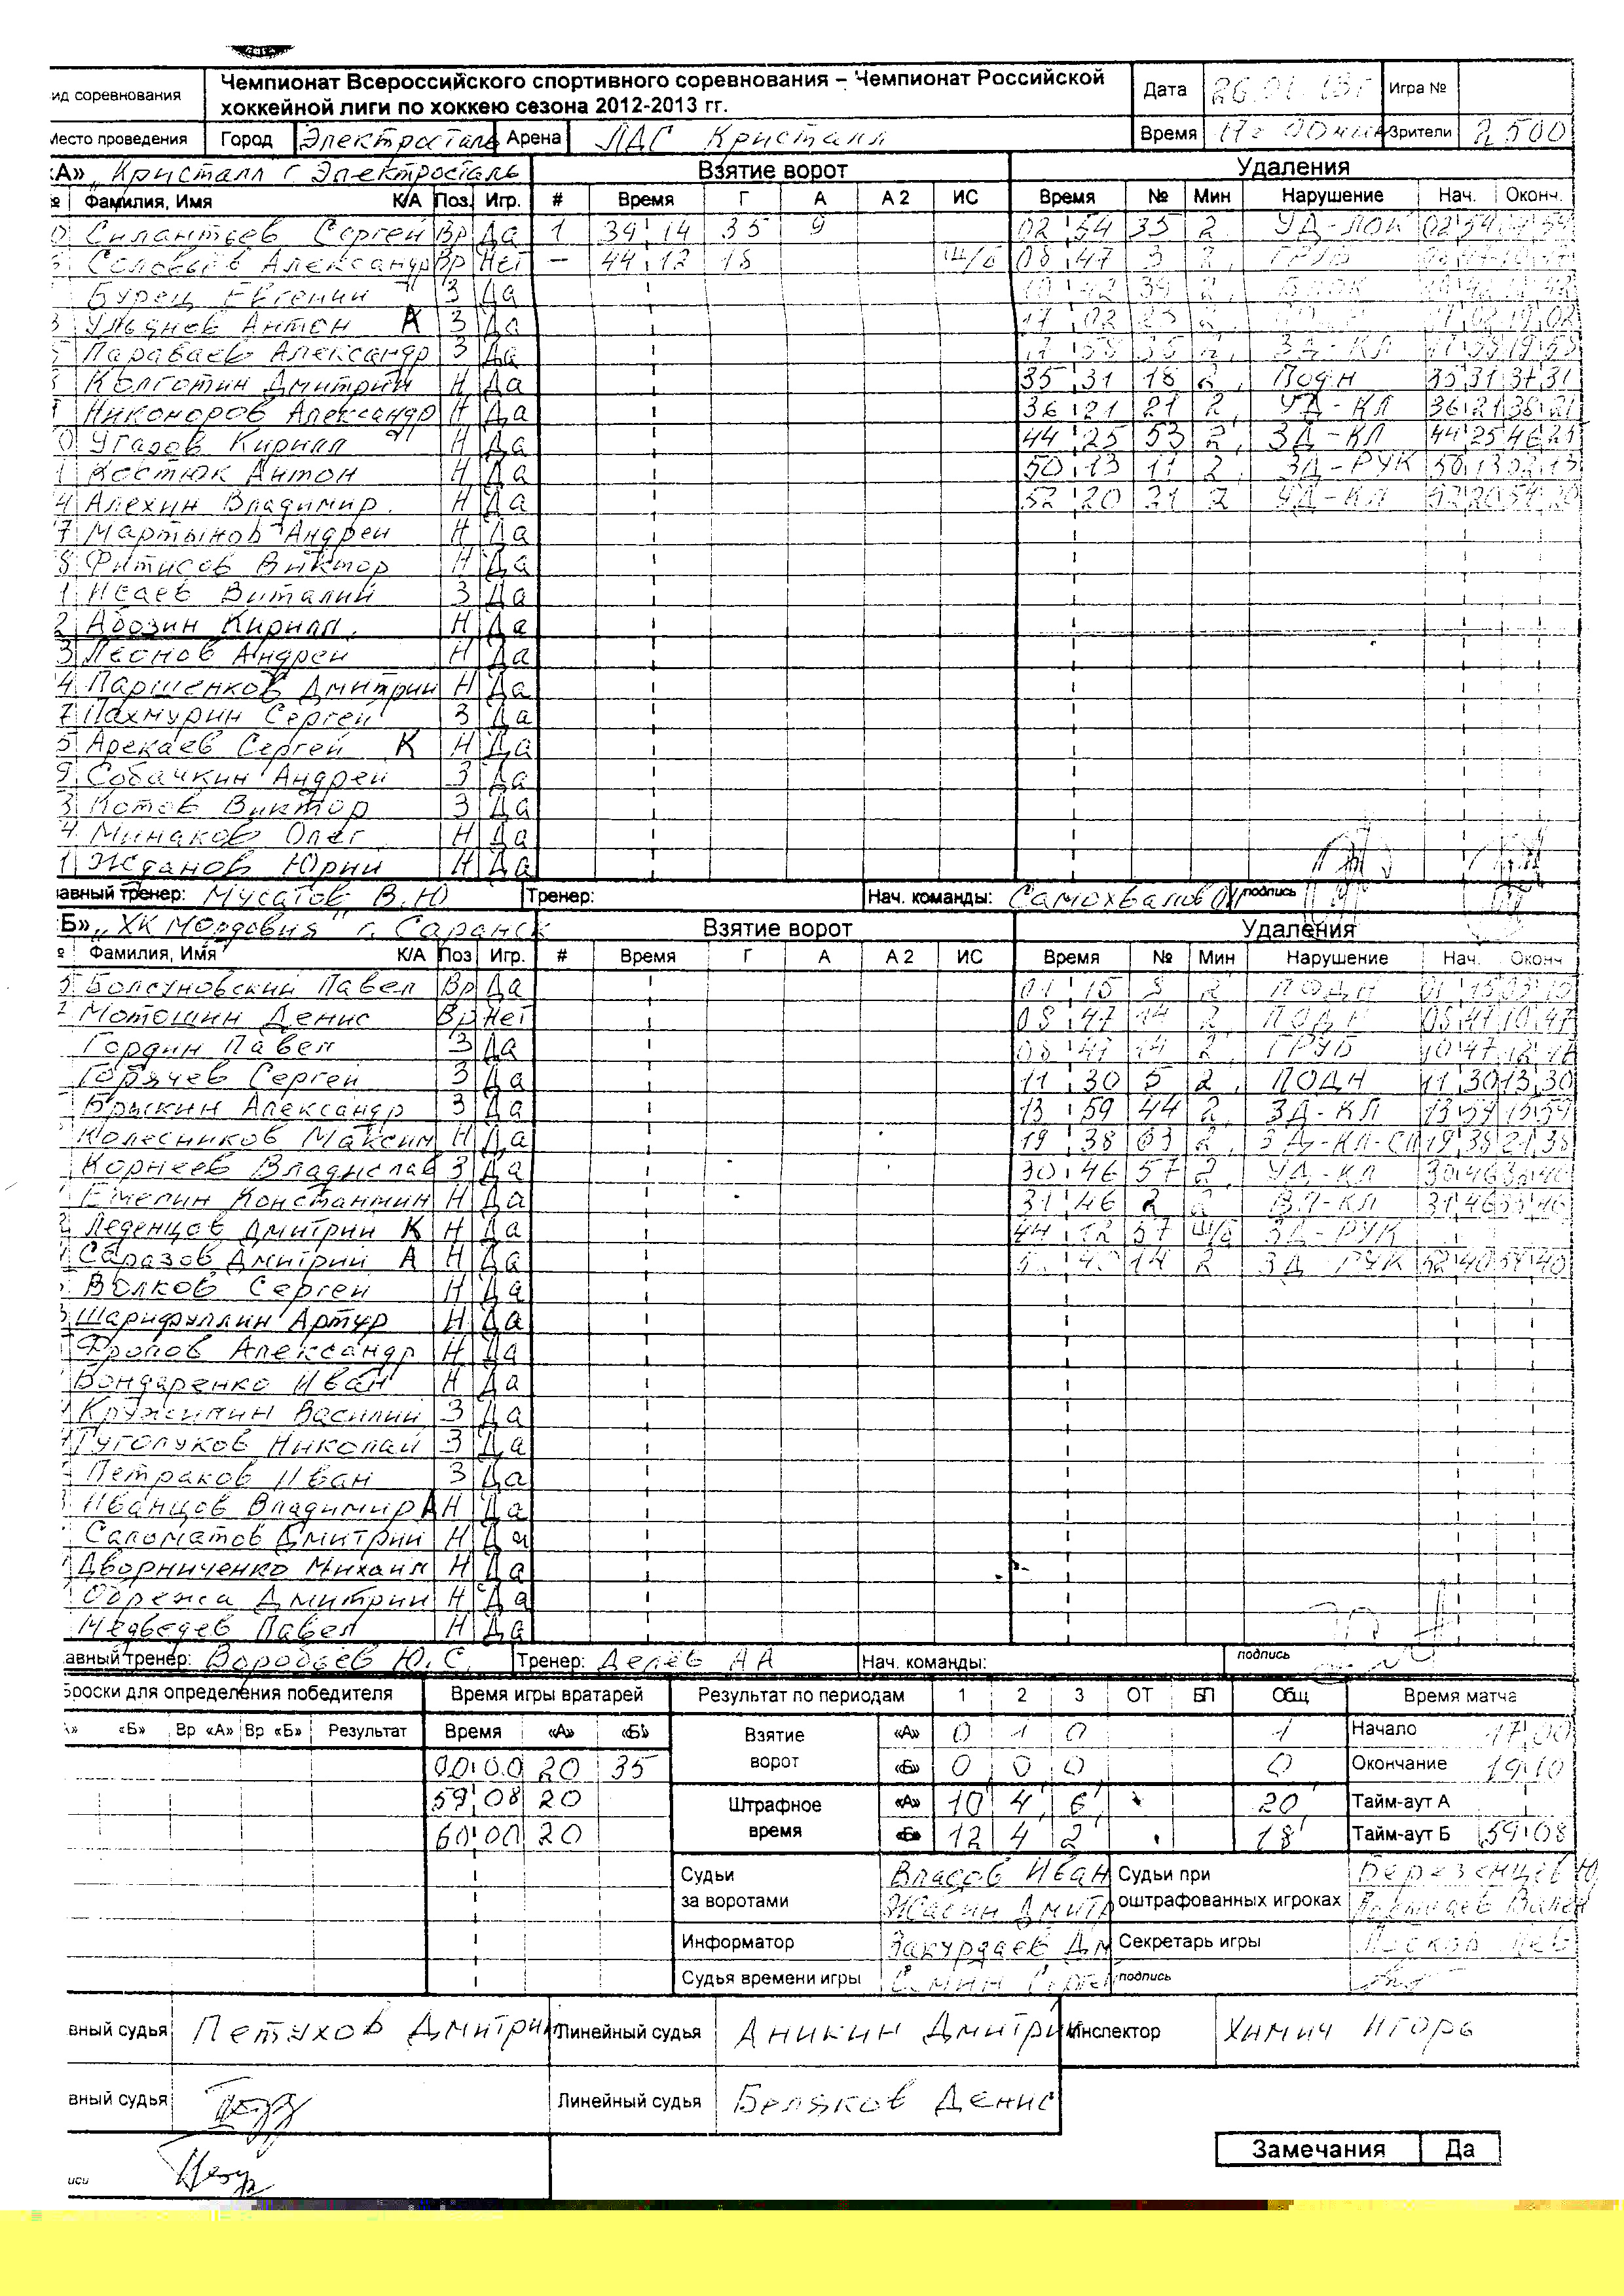 ид соревнования Чемпионат Всероссийского спортивного соревнования – Чемпионат Российской хоккейной лиги по хоккею сезона 2012-2013 гг. Дата 26.01.13г Игра №
Место проведения Город Электросталь Арена ЛДС Кристалл Время 17г 00мин Зрители 2500
«А» „Кристалл г Электросталь Взятие ворот Удаления
№ Фамилия, Имя К/А Поз. Игр. # Время Г А А 2 ИС Время № Мин Нарушение Нач. Оконч.
0 Силантьев Сергей Вр Да 1 39 14 35 9 02 54 35 2 УД-ЛОК 02 54 04 54
Соловьёв Александр Вр Нет – 44 12 18 Ш/Б 08 47 3 2 ГРУБ
Бурец Евгений З Да 10 42 39 2 БЛОК
3 Ульянов Антон А З Да 17 02 23 2 17 02 19 02
Парабаев Александр З Да 17 58 35 2 ЗД-КЛ 17 58 19 58
Колготин Дмитрий Н Да 35 31 18 2 ПОДН 35 31 37 31
Никоноров Александр Н Да 36 21 21 2 УД-КЛ 36 21 38 21
0 Угаров Кирилл Н Да 44 25 53 2 ЗД-КЛ 44 25 46 25
1 Костюк Антон Н Да 50 13 11 2 ЗД-РУК 50 13 52 13
4 Алехин Владимир Н Да 52 20 21 2 УД-КЛ 52 20 54 20
7 Мартынов Андрей Н Да
8 Фитисов Виктор Н Да
1 Исаев Виталий З Да
2 Адозин Кирилл Н Да
3 Леснов Андрей Н Да
4 Паршенков Дмитрий Н Да
7 Пахмурин Сергей З Да
5 Арекаев Сергей К Н Да
9 Собачкин Андрей З Да
3 Котов Виктор З Да
4 Минаков Олег Н Да
1 Жданов Юрий Н Да
авный тренер: Мусатов В.Ю Тренер: Нач. команды: Самохвалов подпись
Б» „ХК Мордовия" г. Саранск Взятие ворот Удаления
№ Фамилия, Имя К/А Поз Игр. # Время Г А А 2 ИС Время № Мин Нарушение Нач. Оконч
5 Болсуновский Павел Вр Да 01 15 8 2 ПОДН 01 15 03 15
Мотошин Денис Вр Нет 08 47 14 2 ПОДН 08 47 10 47
Гордин Павел З Да 08 47 14 2 ГРУБ 10 47 12 47
Горячев Сергей З Да 11 30 5 2 ПОДН 11 30 13 30
Брыкин Александр З Да 13 59 44 2 ЗД-КЛ 13 59 15 59
Колесников Максим Н Да 19 38 63 2 ЗД-КЛ-СП 19 38 21 38
Корнеев Владислав З Да 30 46 57 2 УД-КЛ 30 46
Емелин Константин Н Да 31 46 2 2 ВП-КЛ 31 46
Леденцов Дмитрий К Н Да 44 12 57 Ш/Б ЗД-РУК
Сапазов Дмитрий А Н Да 14 2 ЗД-РУК 52 40 54 40
Волков Сергей Н Да
Шарифуллин Артур Н Да
Фролов Александр Н Да
Бондаренко Иван Н Да
Кружилин Василий З Да
Гуголуков Николай З Да
Петраков Иван З Да
Иванцов Владимир А Н Да
Саломатов Дмитрий Н Да
Дворниченко Михаил Н Да
Обрежа Дмитрий Н Да
Медведев Павел Н Да
авный тренер: Воробьев Ю.С. Тренер: Делёв АА Нач. команды: подпись
броски для определения победителя Время игры вратарей Результат по периодам 1 2 3 ОТ БП Общ Время матча
«Б» Вр «А» Вр «Б» Результат Время «А» «Б» Взятие ворот «А» 0 1 0 1 Начало 17:00
00:00 20 35 «Б» 0 0 0 0 Окончание 19:10
59 08 20 Штрафное время «А» 10 4 6 20 Тайм-аут А
60 00 20 «Б» 12 4 2 18 Тайм-аут Б 59 08
Судьи за воротами Власов Иван Судьи при оштрафованных игроках Березенцев Ю
Жасин Дмитр
Информатор Закурдаев Дм Секретарь игры
Судья времени игры подпись
вный судья Петухов Дмитрий Линейный судья Аникин Дмитрий Инспектор Химич Игорь
вный судья Линейный судья Беляков Денис
Замечания Да
иси